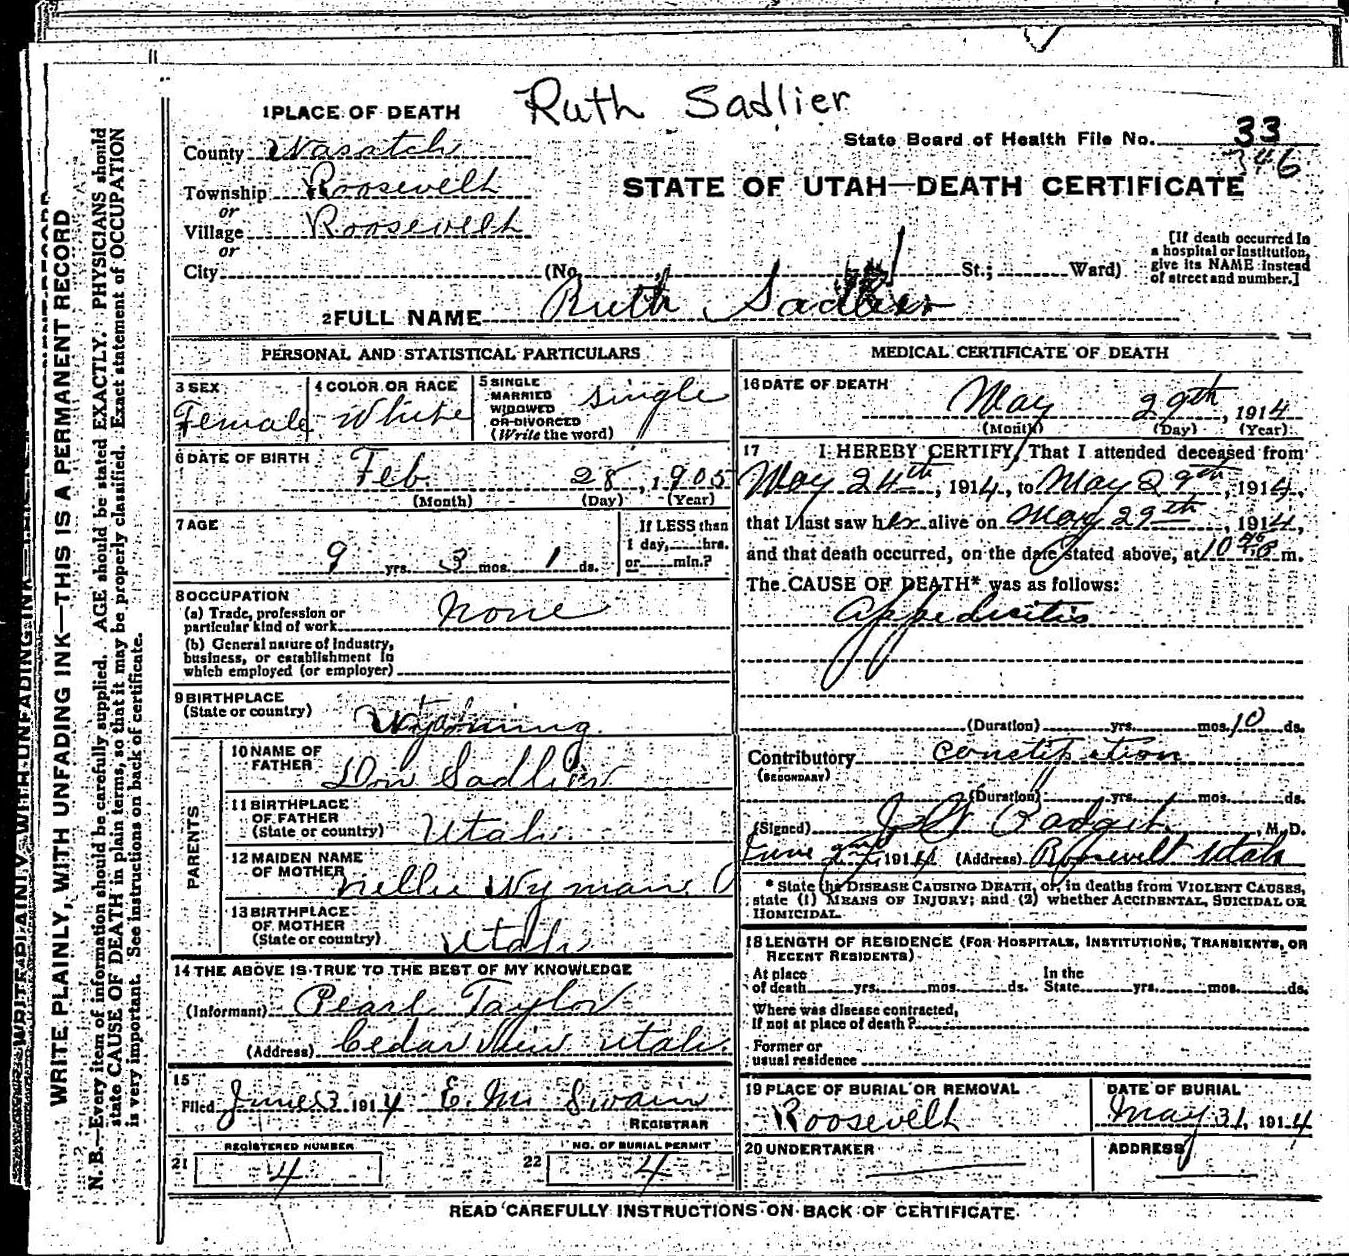 Ruth Sadlier
1 PLACE OF DEATH
State Board of Health File No. 33
346
County Wasatch
Township Roosevelt
or
Village Roosevelt
or
STATE OF UTAH—DEATH CERTIFICATE
City (No. St.; Ward)
[If death occurred in
a hospital or institution,
give its NAME instead
of street and number.]
2 FULL NAME Ruth Sadlier
PERSONAL AND STATISTICAL PARTICULARS
3 SEX
Female
4 COLOR OR RACE
White
5 SINGLE
MARRIED
WIDOWED
OR DIVORCED
(Write the word)
single
6 DATE OF BIRTH
Feb. 28, 1905
(Month) (Day) (Year)
7 AGE
9 yrs. 3 mos. 1 ds.
If LESS than
1 day, hrs.
or min.?
8 OCCUPATION
(a) Trade, profession or
particular kind of work
none
(b) General nature of industry,
business, or establishment in
which employed (or employer)
9 BIRTHPLACE
(State or country)
Wyoming
PARENTS
10 NAME OF
FATHER
Don Sadlier
11 BIRTHPLACE
OF FATHER
(State or country)
Utah
12 MAIDEN NAME
OF MOTHER
Nellie Wyman
13 BIRTHPLACE
OF MOTHER
(State or country)
Utah
14 THE ABOVE IS TRUE TO THE BEST OF MY KNOWLEDGE
(Informant) Pearl Taylor
(Address) Cedar View Utah
15
Filed June 3 1914 E. M. Swain
REGISTRAR
REGISTERED NUMBER
21 4
NO. OF BURIAL PERMIT
22 4
MEDICAL CERTIFICATE OF DEATH
16 DATE OF DEATH
May 29th, 1914
(Month) (Day) (Year)
17 I HEREBY CERTIFY, That I attended deceased from
May 24th, 1914, to May 29th, 1914,
that I last saw her alive on May 29th, 1914,
and that death occurred, on the date stated above, at 10 m.
The CAUSE OF DEATH* was as follows:
Appedicitis
(Duration) yrs. mos. 10 ds.
Contributory constipation
(SECONDARY)
(Duration) yrs. mos. ds.
(Signed) Padget, M. D.
June 2nd, 1914 (Address) Roosevelt Utah
* State the DISEASE CAUSING DEATH, or, in deaths from VIOLENT CAUSES,
state (1) MEANS OF INJURY; and (2) whether ACCIDENTAL, SUICIDAL OR
HOMICIDAL.
18 LENGTH OF RESIDENCE (FOR HOSPITALS, INSTITUTIONS, TRANSIENTS, OR
RECENT RESIDENTS)
At place
of death yrs. mos. ds.
In the
State yrs. mos. ds.
Where was disease contracted,
if not at place of death?
Former or
usual residence
19 PLACE OF BURIAL OR REMOVAL
Roosevelt
DATE OF BURIAL
May 31, 1914
20 UNDERTAKER
ADDRESS
READ CAREFULLY INSTRUCTIONS ON BACK OF CERTIFICATE.
WRITE PLAINLY, WITH UNFADING INK—THIS IS A PERMANENT RECORD
N. B.—Every item of information should be carefully supplied. AGE should be stated EXACTLY. PHYSICIANS should
state CAUSE OF DEATH in plain terms, so that it may be properly classified. Exact statement of OCCUPATION
is very important. See instructions on back of certificate.